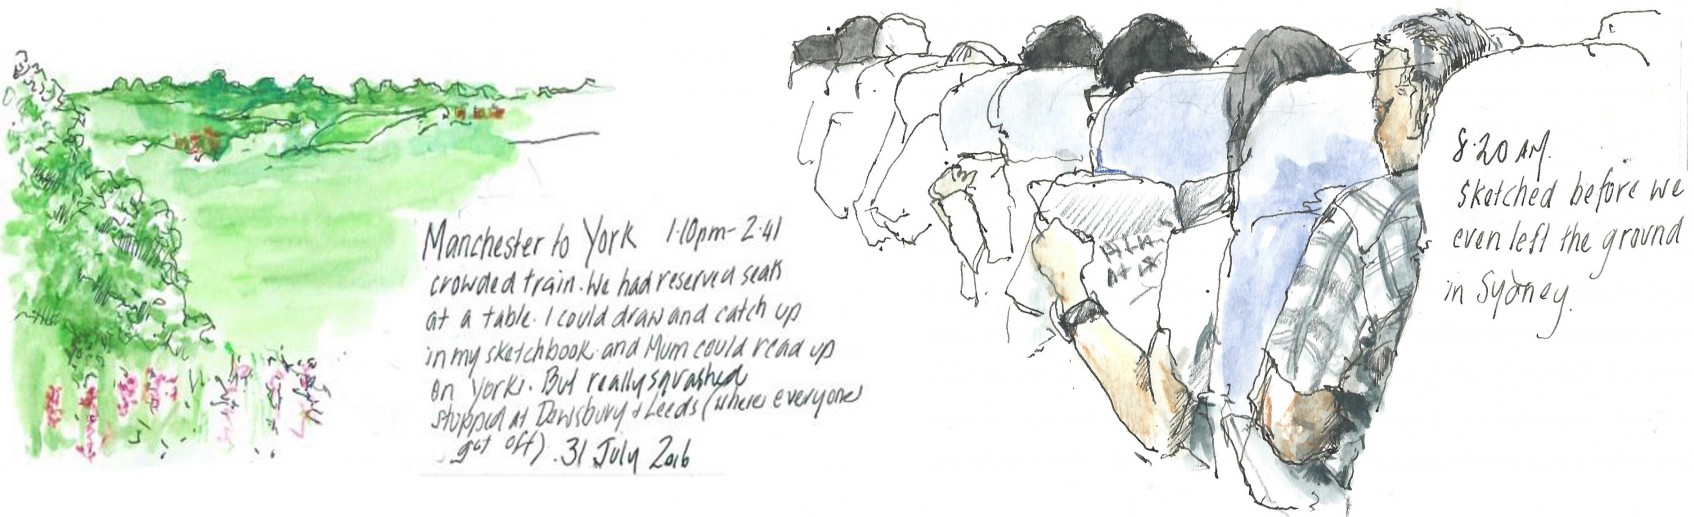 Manchester to York 1.10pm-2.41
crowded train. We had reserved seats
at a table. I could draw and catch up
in my sketchbook and Mum could read up
on York. But really squashed
stopped at Dewsbury + Leeds (where everyone
got off). 31 July 2016
8.20 AM.
sketched before we
even left the ground
in Sydney.